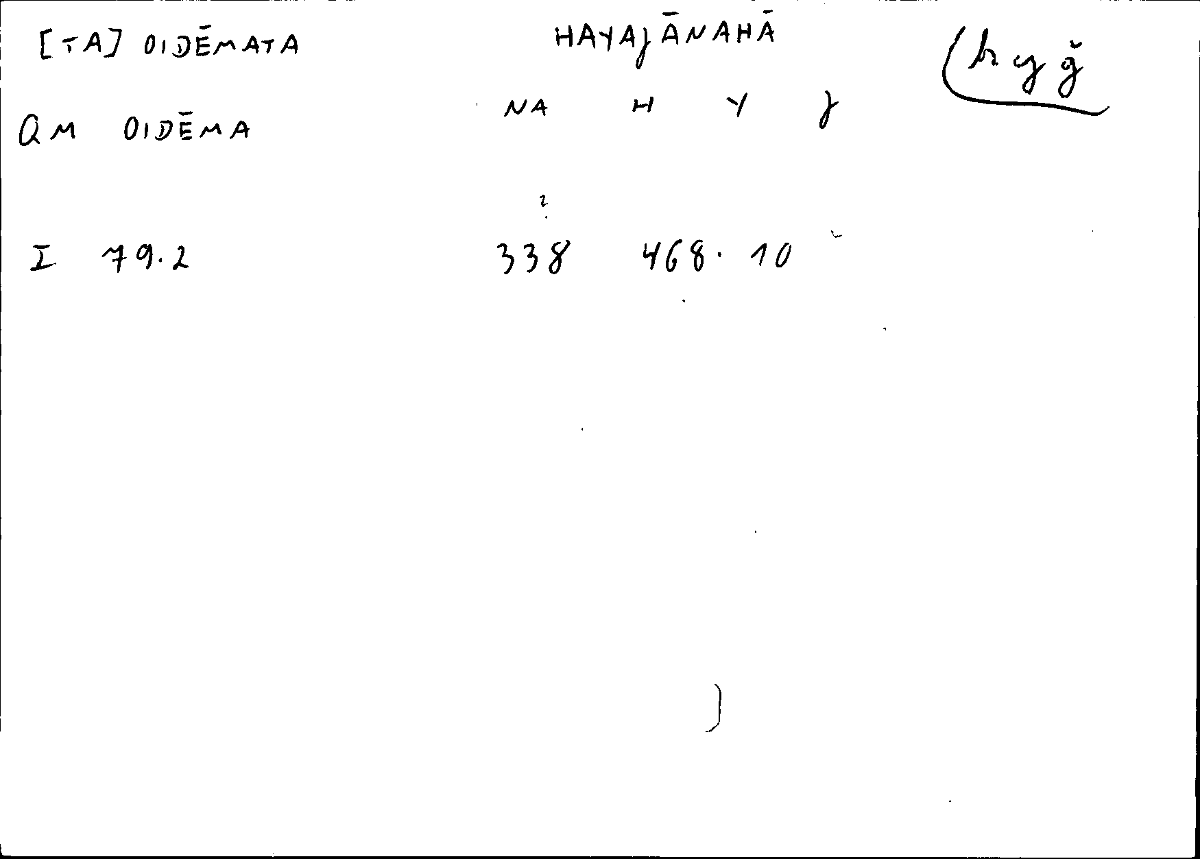 [TA] OIDĒMATA HAYAJĀNAHĀ (h y ǧ
QM OIDĒMA NA H Y J
I 79.2 338 468.10